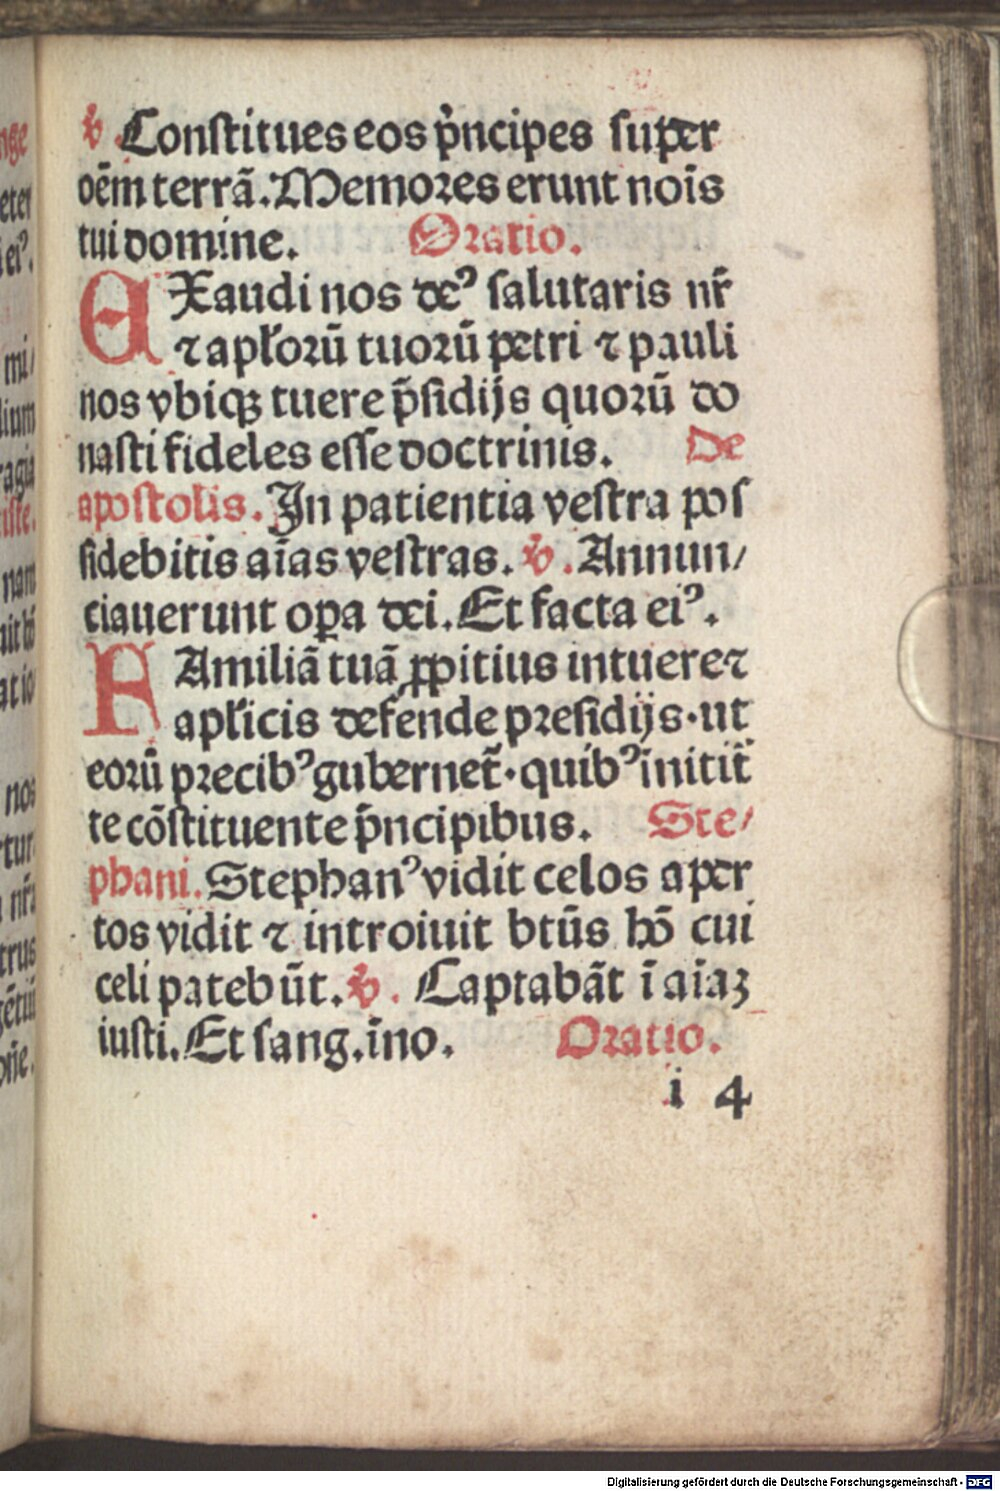 ℣. Constitues eos p̄ncipes super
oēm terrā. Memores erunt noīs
tui domine. Oratio.
EXaudi nos deꝰ salutaris nr̄
⁊ apłorū tuorū petri ⁊ pauli
nos vbiqꝫ tuere p̄sidijs quorū do
nasti fideles esse doctrinis. De
apostolis. In patientia vestra pos
sidebitis aīas vestras. ℣. Annun/
ciauerunt oꝑa dei. Et facta eiꝰ.
FAmiliā tuā ꝓpitius intuere ⁊
apłicis defende presidijs. ut
eorū precibꝰ gubernet̄. quibꝰ īnitit̄
te cōstituente p̄ncipibus. Ste/
phani. Stephanꝰ vidit celos aper
tos vidit ⁊ introiuit btūs hō cui
celi patebūt. ℣. Captabāt ī aīaꝫ
iusti. Et sang. īno. Oratio.
i 4
Digitalisierung gefördert durch die Deutsche Forschungsgemeinschaft - DFG